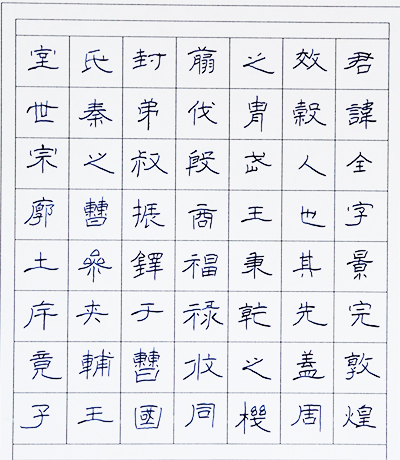 君諱全字景完敦煌
效穀人也其先蓋周
之胄武王秉乾之機
翦伐殷商福祿攸同
封弟叔振鐸于曹國
氏秦之曹參夾輔王
室世宗廓土斥竟子